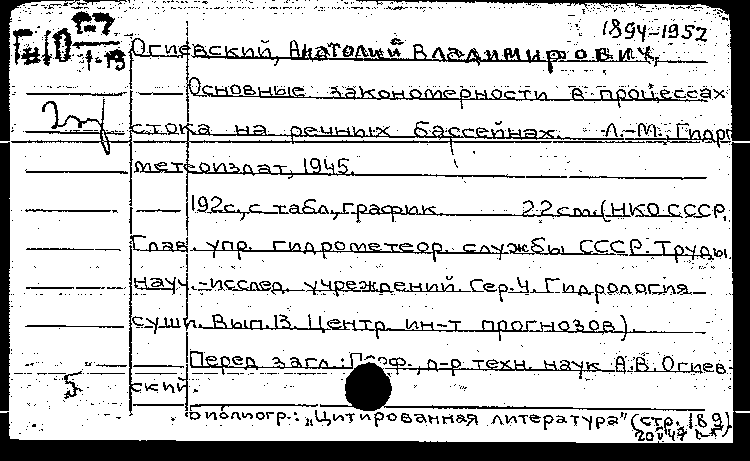 1894-1952
Г-7
1-19
Огиевский, Анатолий Владимирович,
Основные закономерности в процессах
стока на речных бассейнах. Л.-М., Гидро
метеоиздат, 1945.
192с., с табл., график. 22см. (НКО СССР.
Глав. упр. гидрометеор. службы СССР. Труды
науч.-исслед. учреждений. Сер. 4. Гидрология
суши. Вып. 13. Центр. ин-т прогнозов).
Перед загл.: Проф., д-р техн. наук А.В. Огиев-
ский.
Библиогр.: „Цитированная литература" (стр. 189)